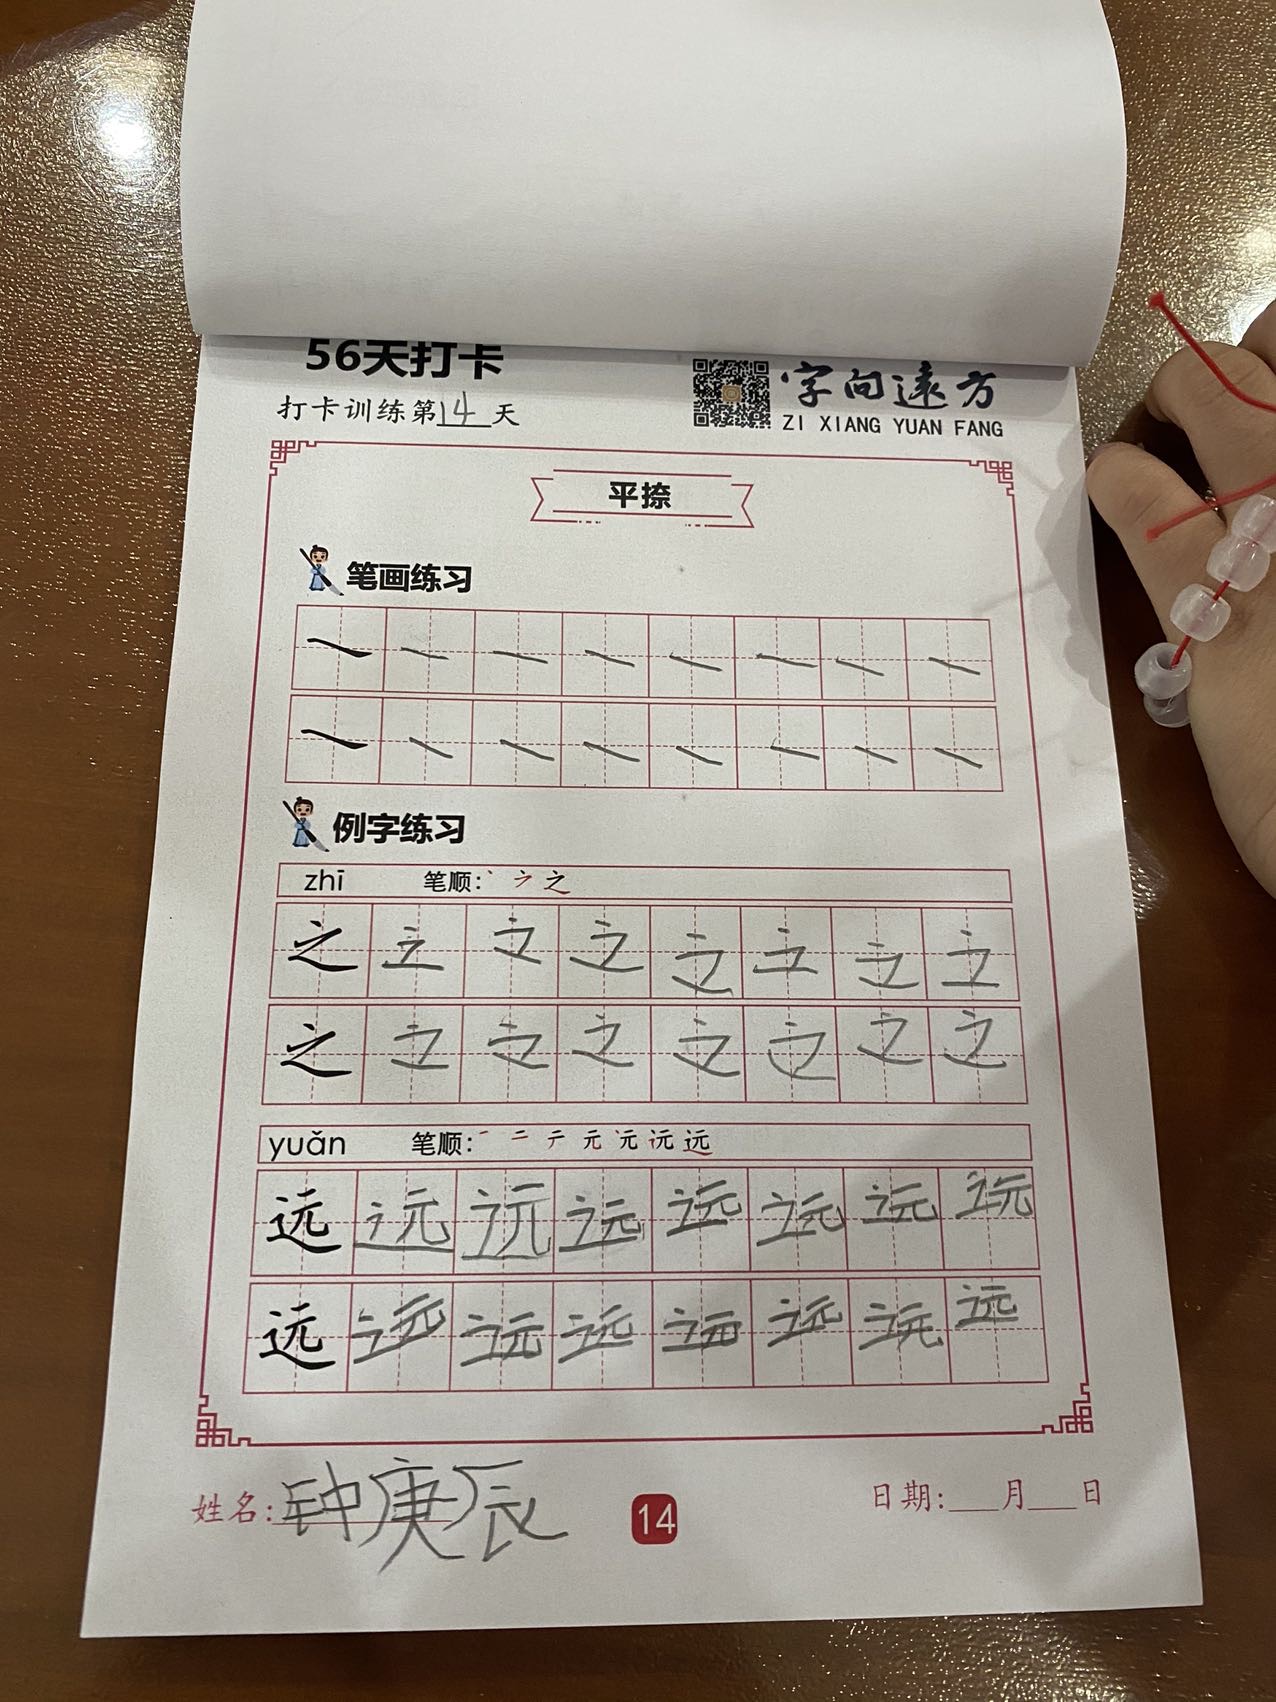 56天打卡
打卡训练第14天
字向远方
ZI XIANG YUAN FANG
平捺
笔画练习
例字练习
zhī 笔顺: 丶 ㇇ 之
之 之 之 之 之 之 之 之
之 之 之 之 之 之 之 之
yuǎn 笔顺: 一 二 テ 元 沅 远 远
远 远 远 远 远 远 远 远
远 远 远 远 远 远 远 远
姓名:钟庚辰
14
日期:___月___日